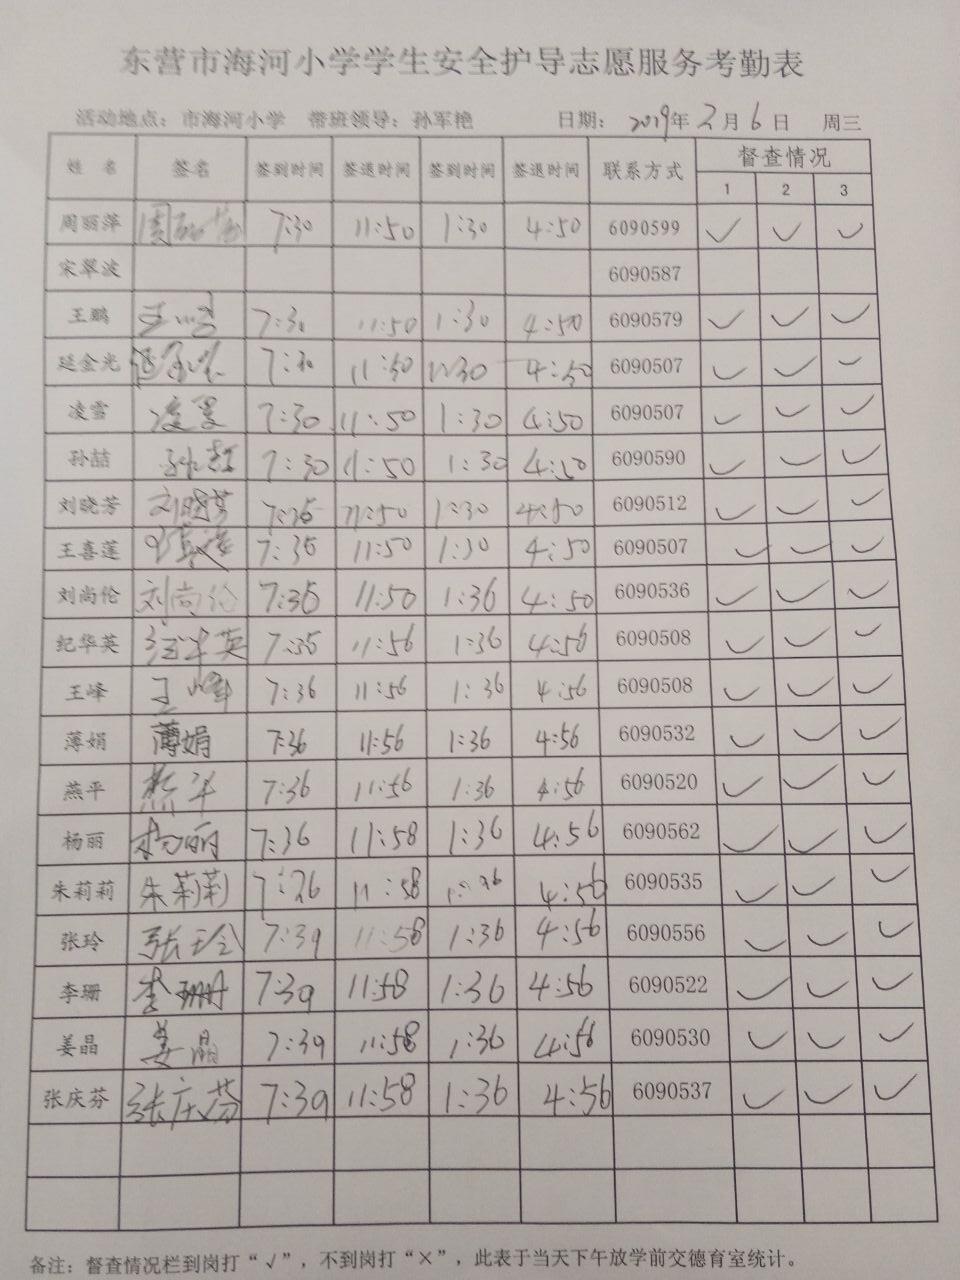 东营市海河小学学生安全护导志愿服务考勤表
活动地点：市海河小学 带班领导：孙军艳 日期：2019年2月6日 周三
姓名 签名 签到时间 签退时间 签到时间 签退时间 联系方式 督查情况
1 2 3
周丽萍 周丽萍 7:30 11:50 1:30 4:50 6090599 ✓ ✓ ✓
宋翠波 6090587
王鹏 王鹏 7:30 11:50 1:30 4:50 6090579 ✓ ✓ ✓
延金光 延金光 7:30 11:50 1:30 4:50 6090507 ✓ ✓ ✓
凌雪 凌雪 7:30 11:50 1:30 4:50 6090507 ✓ ✓ ✓
孙喆 孙喆 7:30 11:50 1:30 4:50 6090590 ✓ ✓ ✓
刘晓芳 刘晓芳 7:35 11:50 1:30 4:50 6090512 ✓ ✓ ✓
王喜莲 7:35 11:50 1:30 4:50 6090507 ✓ ✓ ✓
刘尚伦 刘尚伦 7:35 11:50 1:36 4:50 6090536 ✓ ✓ ✓
纪华英 纪华英 7:35 11:56 1:36 4:56 6090508 ✓ ✓ ✓
王峰 王峰 7:36 11:56 1:36 4:56 6090508 ✓ ✓ ✓
薄娟 薄娟 7:36 11:56 1:36 4:56 6090532 ✓ ✓ ✓
燕平 燕平 7:36 11:56 1:36 4:56 6090520 ✓ ✓ ✓
杨丽 杨丽 7:36 11:58 1:36 4:56 6090562 ✓ ✓ ✓
朱莉莉 朱莉莉 7:26 11:58 1:36 4:56 6090535 ✓ ✓ ✓
张玲 张玲 7:39 11:58 1:36 4:56 6090556 ✓ ✓ ✓
李珊 李珊 7:39 11:58 1:36 4:56 6090522 ✓ ✓ ✓
姜晶 姜晶 7:39 11:58 1:36 4:56 6090530 ✓ ✓ ✓
张庆芬 张庆芬 7:39 11:58 1:36 4:56 6090537 ✓ ✓ ✓
备注：督查情况栏到岗打“√”，不到岗打“×”，此表于当天下午放学前交德育室统计。